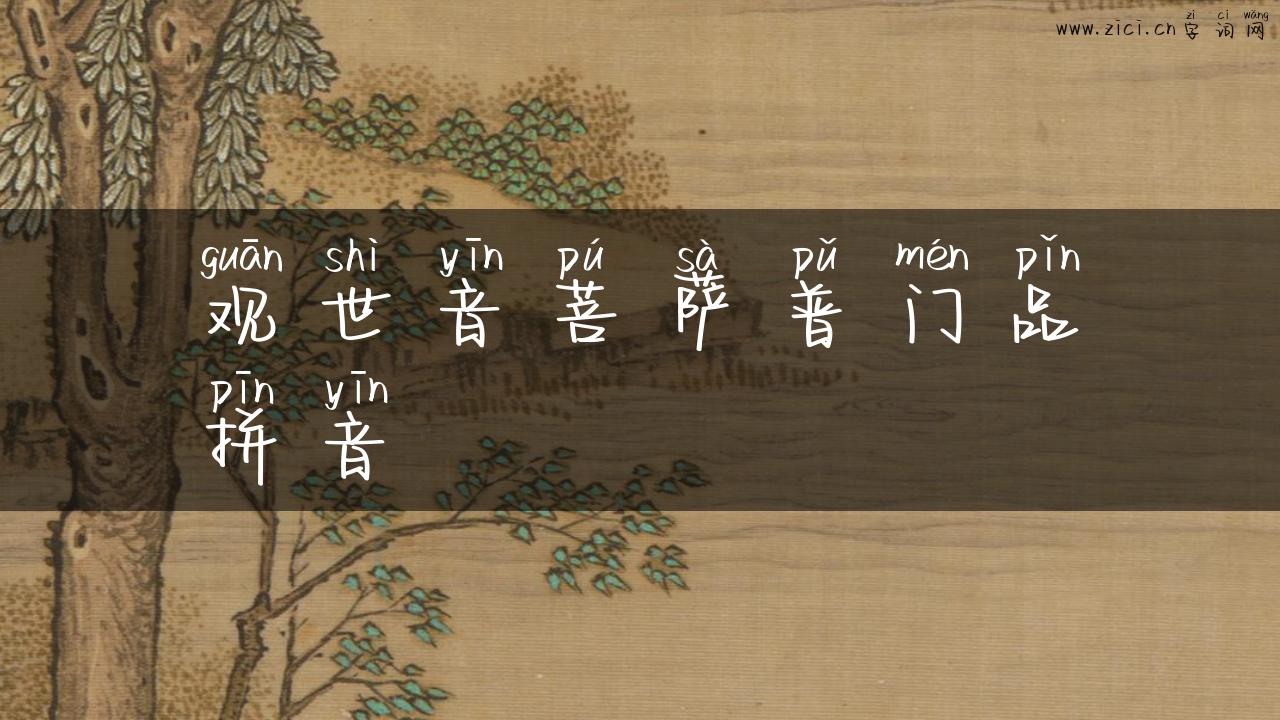 zì cí wǎng
www.zici.cn 字词网
guān shì yīn pú sà pǔ mén pǐn
观世音菩萨普门品
pīn yīn
拼音